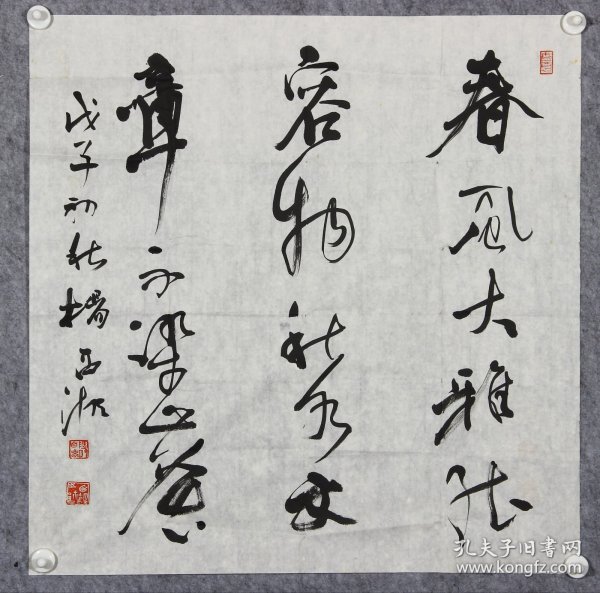 春风大雅能
容物秋水文
章不染尘
戊子初秋杨
孔夫子旧书网
www.kongfz.com